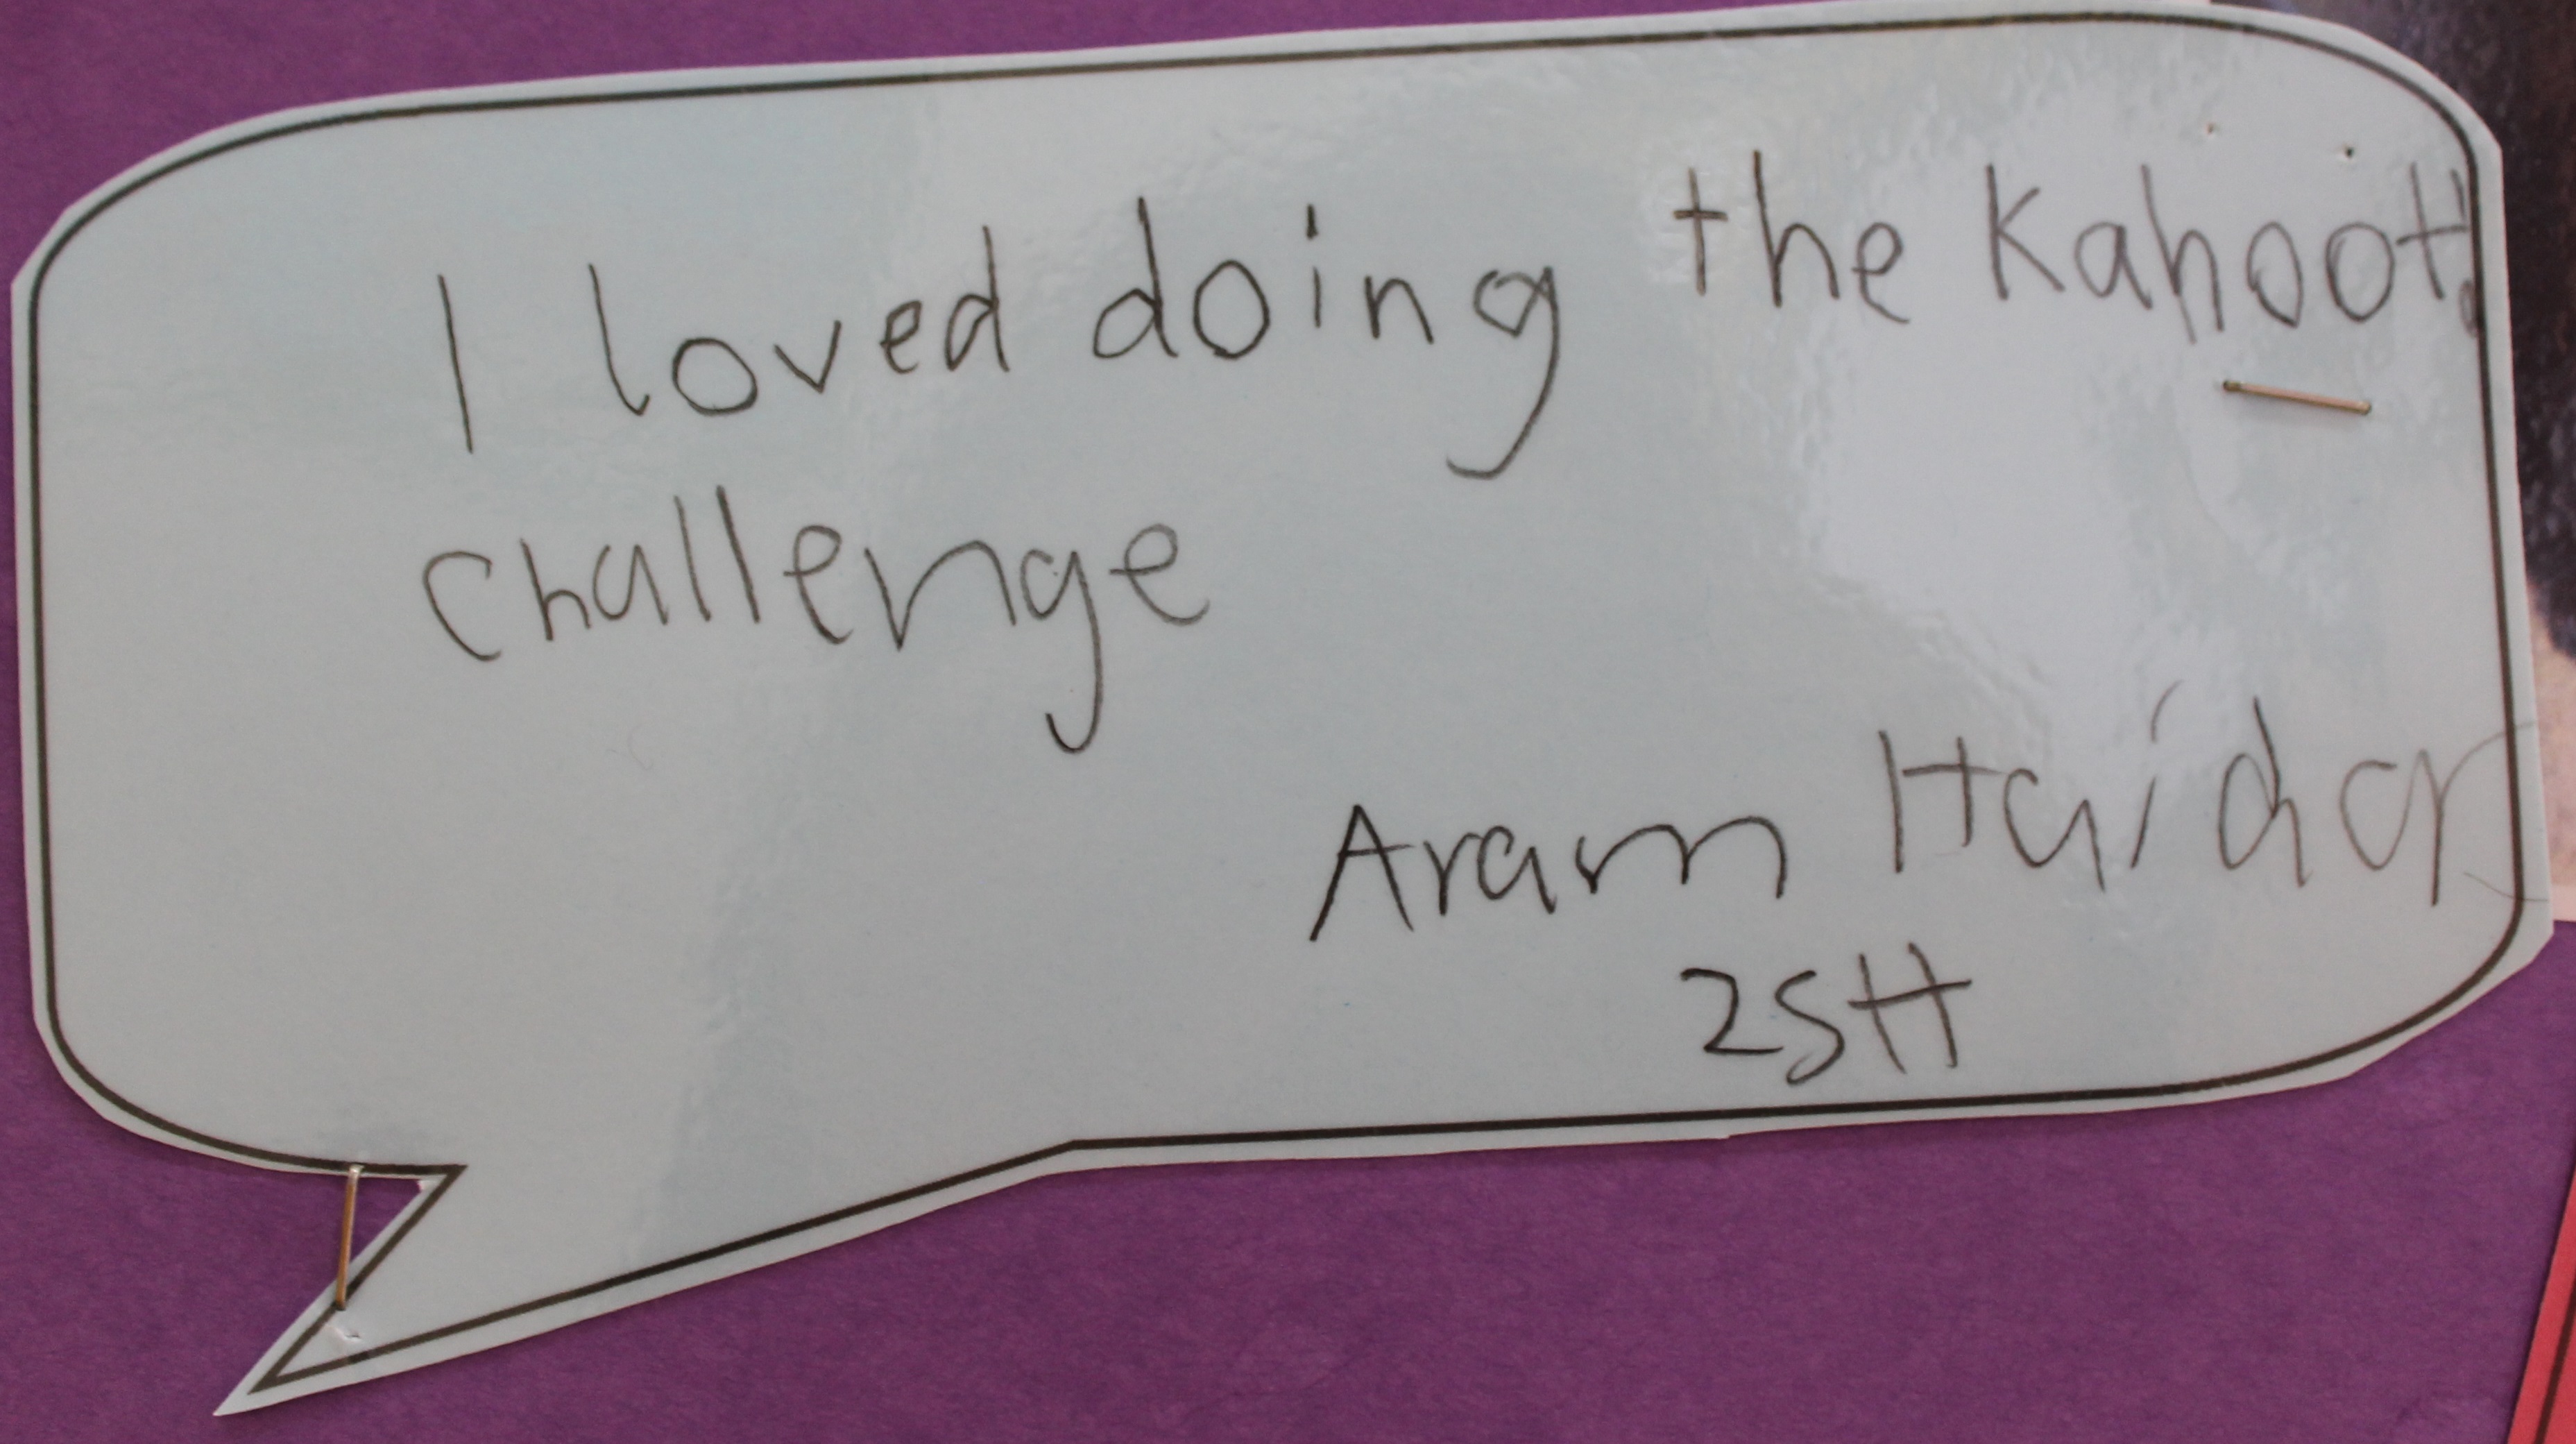 I loved doing the Kahoot!
challenge
Aram Haidar
2SH